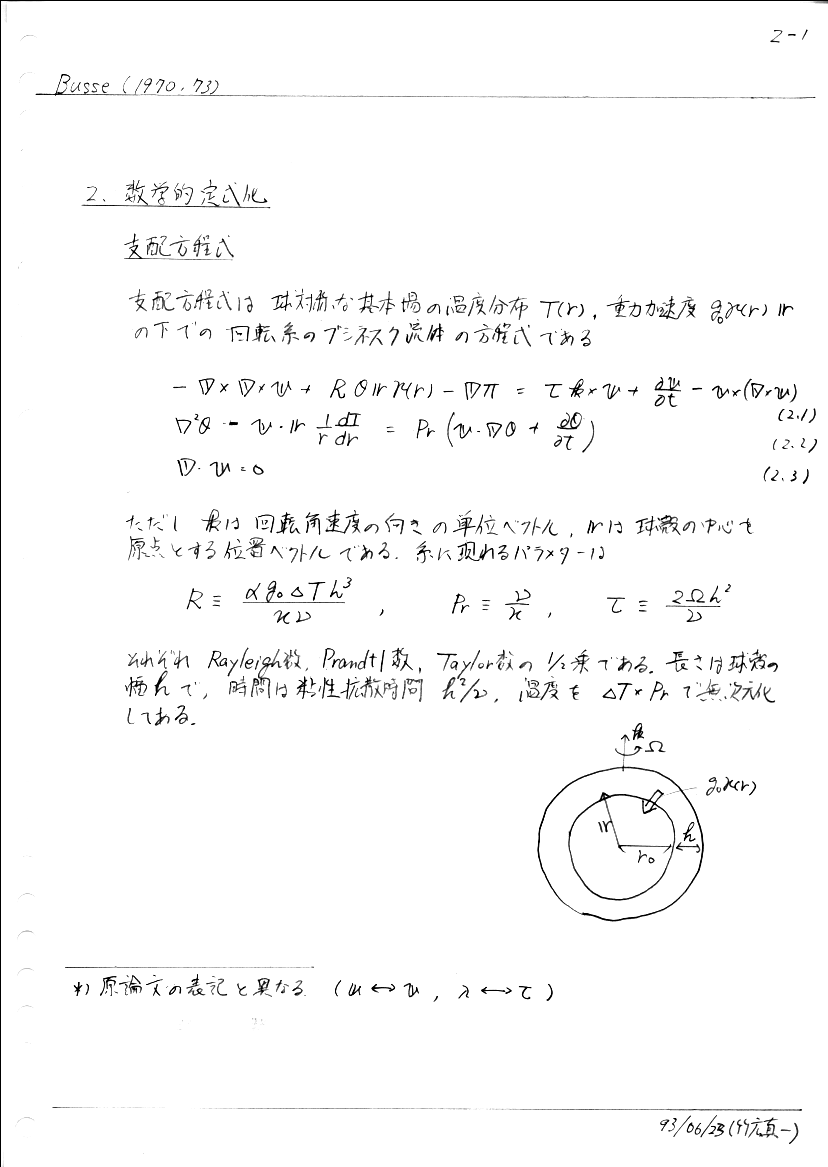 2-1
Busse (1970, 73)
2. 数学的定式化
支配方程式
支配方程式は 球対称な基本場の温度分布 T(r), 重力加速度 g₀γ(r) 𝕣
の下での 回転系のブシネスク流体の方程式である
− ∇×∇×𝕦 + Rθ𝕣γ(r) − ∇π = τ𝕜×𝕦 + ∂𝕦/∂t − 𝕦×(∇×𝕦)
(2.1)
∇²θ − 𝕦·𝕣 1/r dT/dr = Pr (𝕦·∇θ + ∂θ/∂t)
(2.2)
∇·𝕦 = 0
(2.3)
ただし 𝕜は 回転角速度の向きの単位ベクトル, 𝕣は 球殻の中心を
原点とする位置ベクトルである. 系に現れるパラメターは
R ≡ αg₀ΔTh³/κν , Pr ≡ ν/κ , τ ≡ 2Ωh²/ν
それぞれ Rayleigh数, Prandtl数, Taylor数の 1/2乗である. 長さは球殻の
幅hで, 時間は粘性拡散時間 h²/ν, 温度を ΔT×Pr で無次元化
してある.
𝕜
Ω
g₀γ(r)
𝕣
r₀
h
*) 原論文の表記と異なる (𝕦 ↔ 𝕧, λ ↔ τ)
93/06/23(竹広真一)